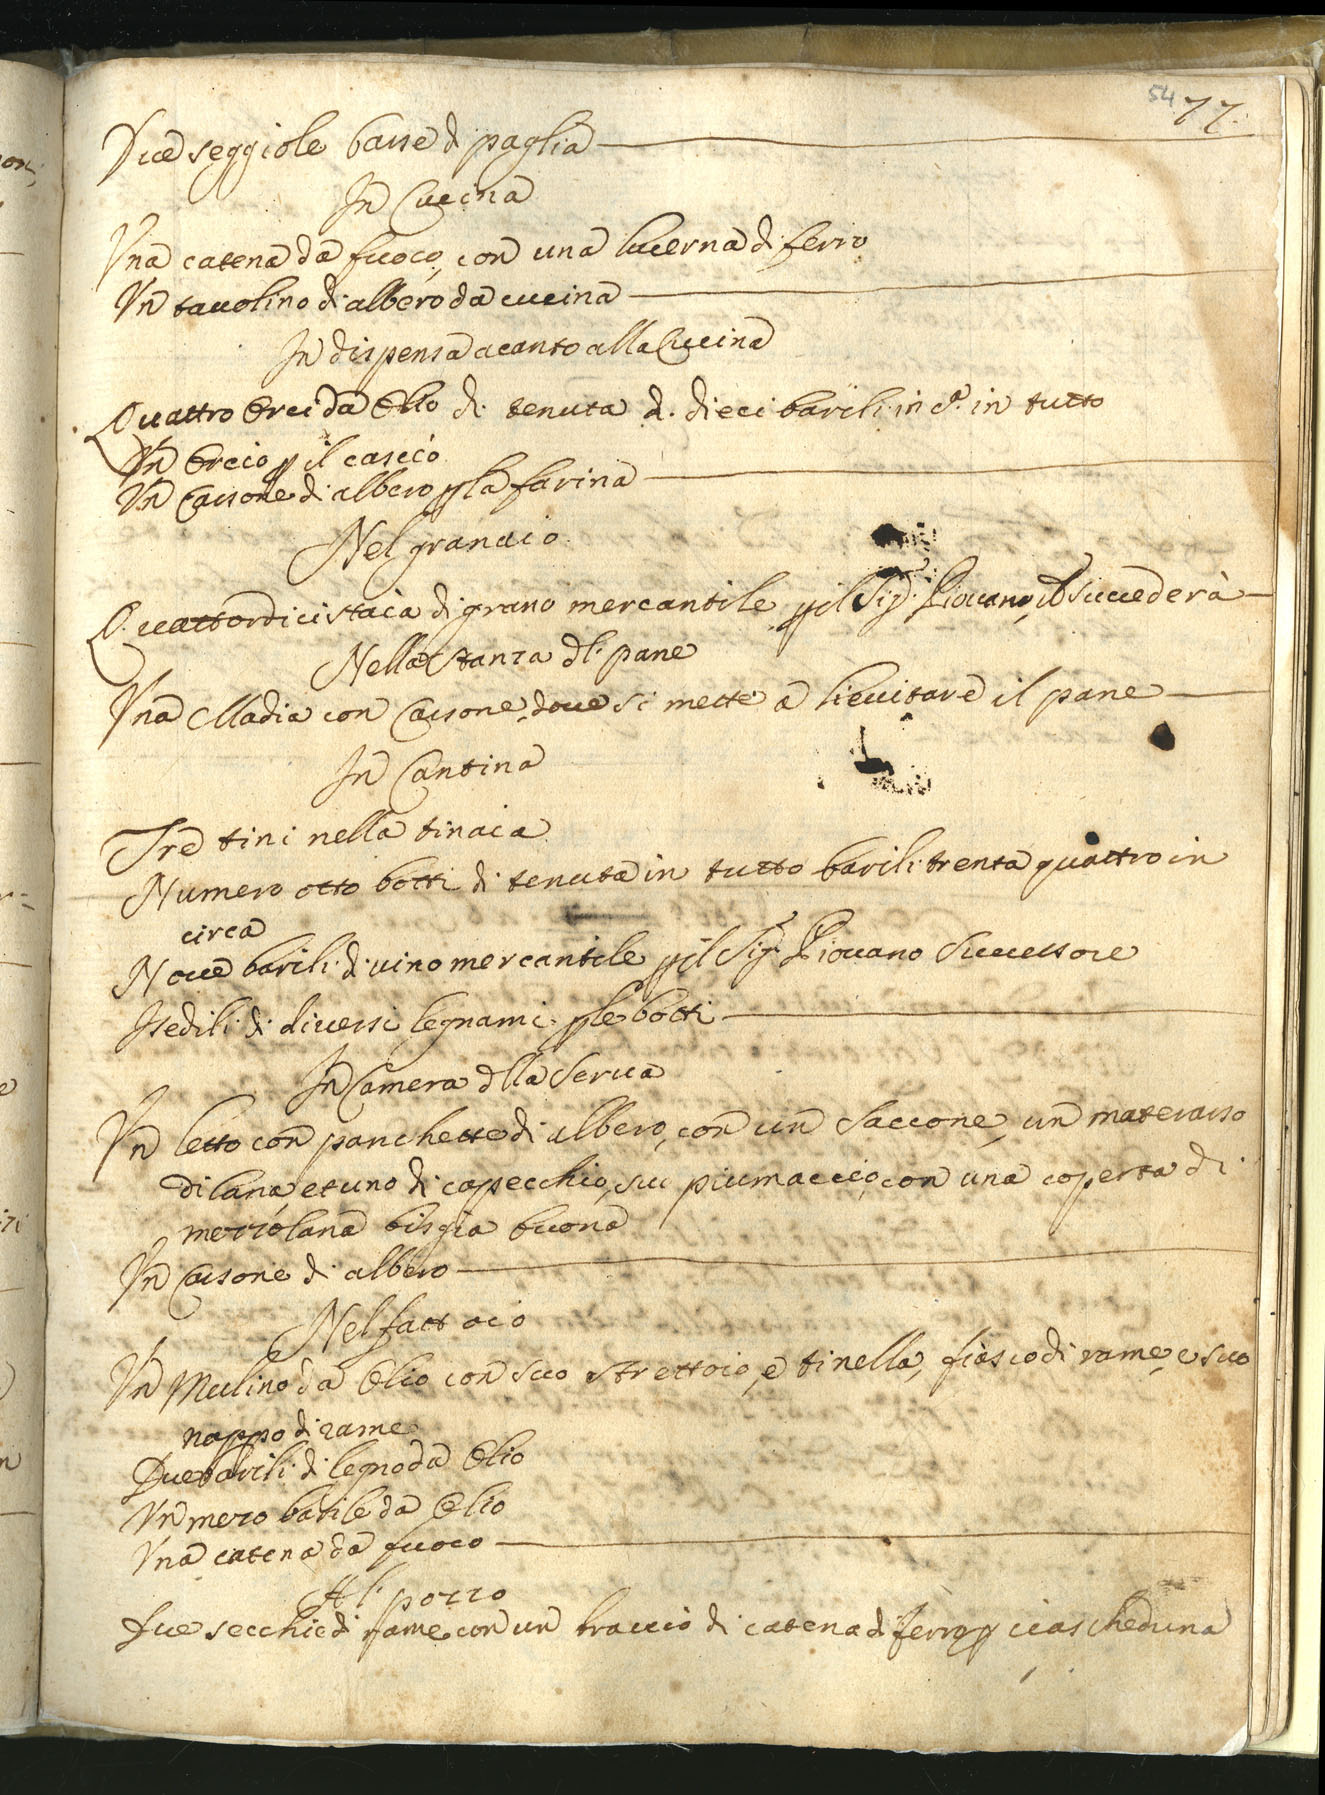 54 77.
Due seggiole basse di paglia
In Cucina
Vna catena da fuoco, con una lucerna di ferro
Vn tauolino di albero da cucina
In dispensa acanto alla Cucina
Quattro Orci da Olio di tenuta d. dieci barili in ca. in tutto
Vn Orcio p il cascio
Vn Cassone di albero p la farina
Nel granaio
Quattordici staia di grano mercantile p il Sig. Piouano, che succederà
Nella stanza dl pane
Vna Madia con Cassone, doue si mette a lieuitare il pane
In Cantina
Tre tini nella tinaia
Numero otto botti di tenuta in tutto barili trenta quattro in
circa
Noue barili di uino mercantile p il Sig. Piouano Successore
I sedili di diuersi legnami p le botti
In Camera dlla Serua
Vn letto con panchette di albero, con un Saccone, un materasso
di lana, et uno di capecchio, suo piumaccio, con una coperta di
mezzolana bisgia buona
Vn Cassone di albero
Nel fattoio
Vn Mulino da Olio con suo strettoio, e tinella, fiasco di rame, e suo
nappo di rame
Due barili di legno da Olio
Vn mezo barile da Olio
Vna catena da fuoco
Al pozzo
Due secchie di rame con un braccio di catena di ferro p ciascheduna